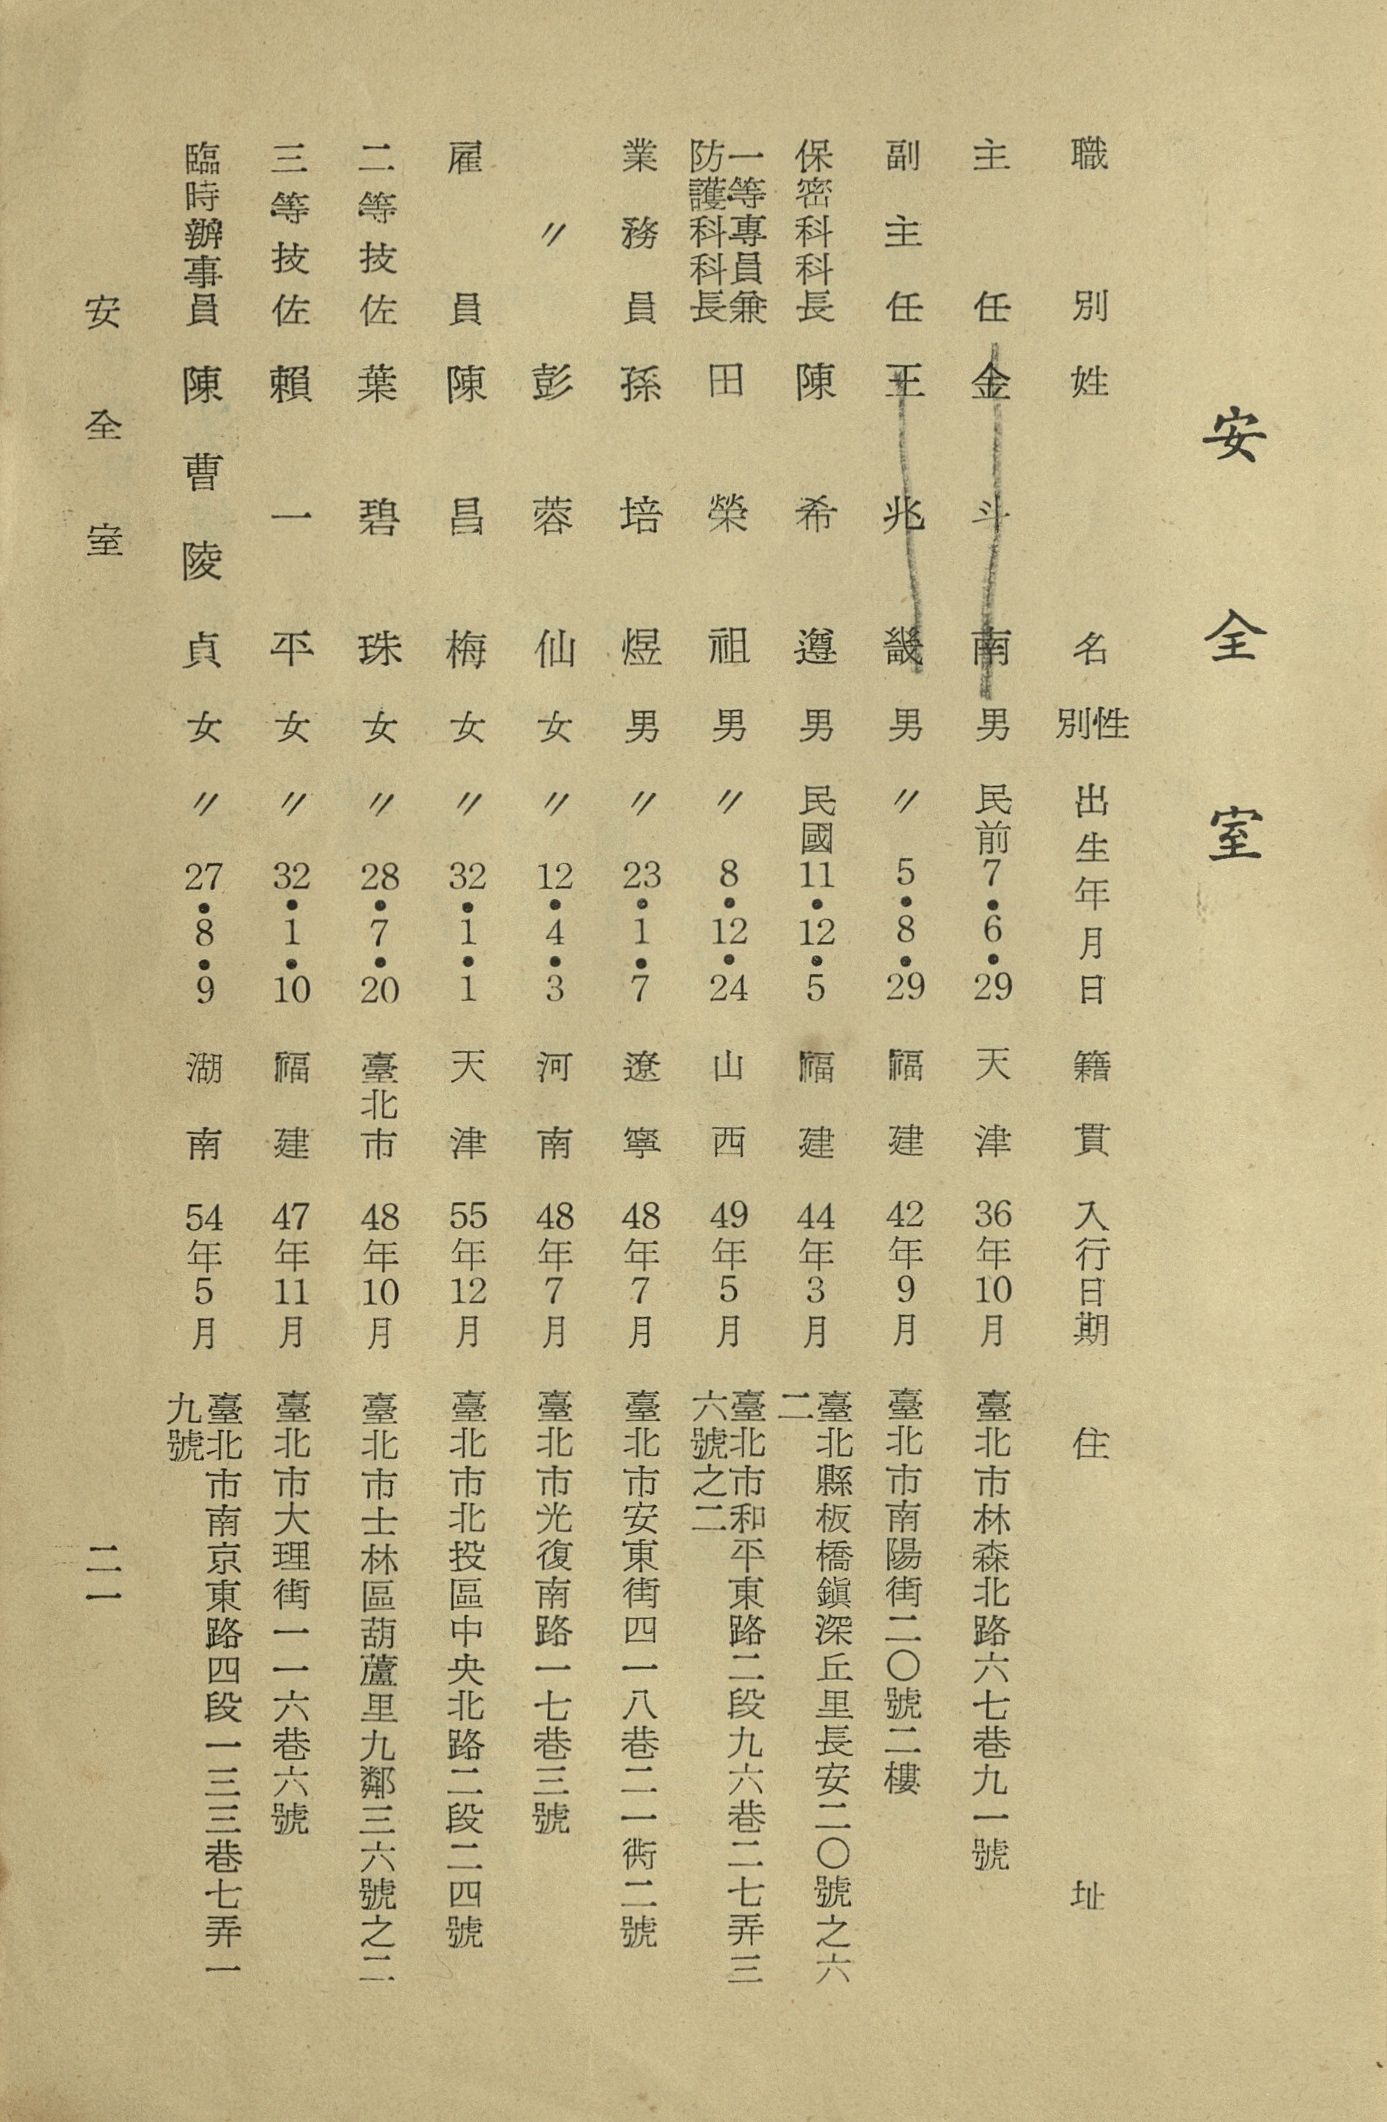 安全室
職別 姓名 性別 出生年月日 籍貫 入行日期 住址
主任 金斗南 男 民前7•6•29 天津 36年10月 臺北市林森北路六七巷九一號
副主任 王兆畿 男 〃5•8•29 福建 42年9月 臺北市南陽街二〇號二樓
保密科科長 陳希遵 男 民國11•12•5 福建 44年3月 臺北縣板橋鎮深丘里長安二〇號之六二
一等專員兼防護科科長 田榮祖 男 〃8•12•24 山西 49年5月 臺北市和平東路二段九六巷二七弄三六號之二
業務員 孫培煜 男 〃23•1•7 遼寧 48年7月 臺北市安東街四一八巷二一衖二號
〃 彭蓉仙 女 〃12•4•3 河南 48年7月 臺北市光復南路一七巷三號
雇員 陳昌梅 女 〃32•1•1 天津 55年12月 臺北市北投區中央北路二段二四號
二等技佐 葉碧珠 女 〃28•7•20 臺北市 48年10月 臺北市士林區葫蘆里九鄰三六號之二
三等技佐 賴一平 女 〃32•1•10 福建 47年11月 臺北市大理街一一六巷六號
臨時辦事員 陳曹陵貞 女 〃27•8•9 湖南 54年5月 臺北市南京東路四段一三三巷七弄一九號
安全室 二一